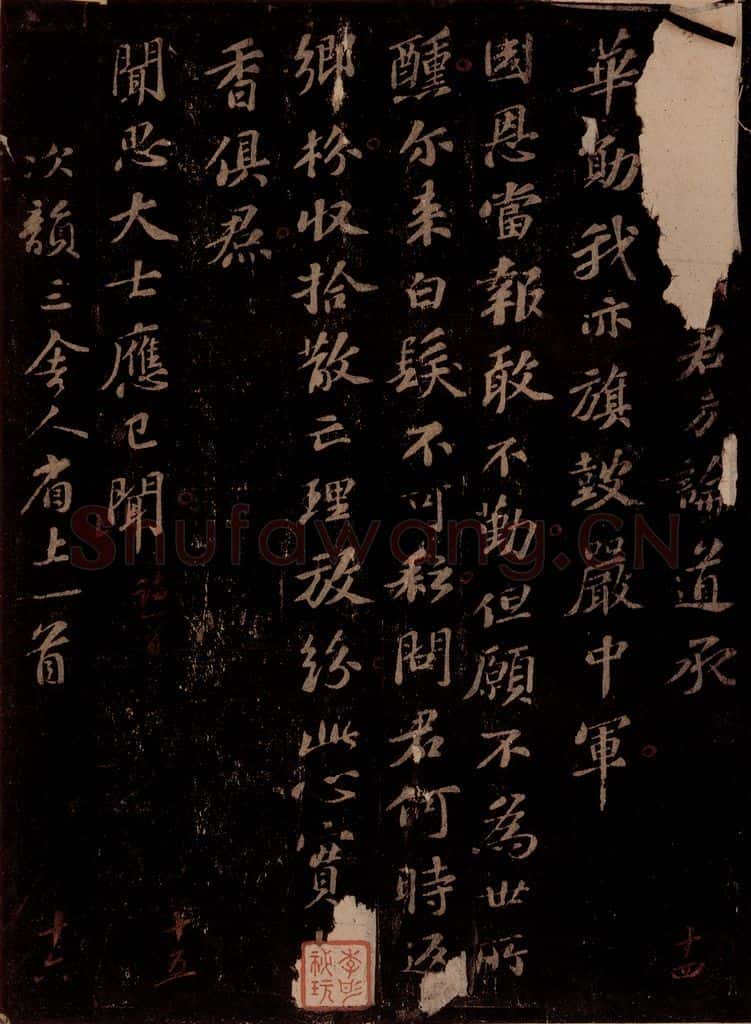 君方論道承
華勛我亦旗鼓嚴中軍
國恩當報敢不勤但願不為世所
醺尔来白髮不可耘問君何時返
鄉枌収拾散亡理放紛此心實
香俱焄
聞思大士應已聞
次韻三舍人省上一首
十四
十五
十六
Shufawang.CN